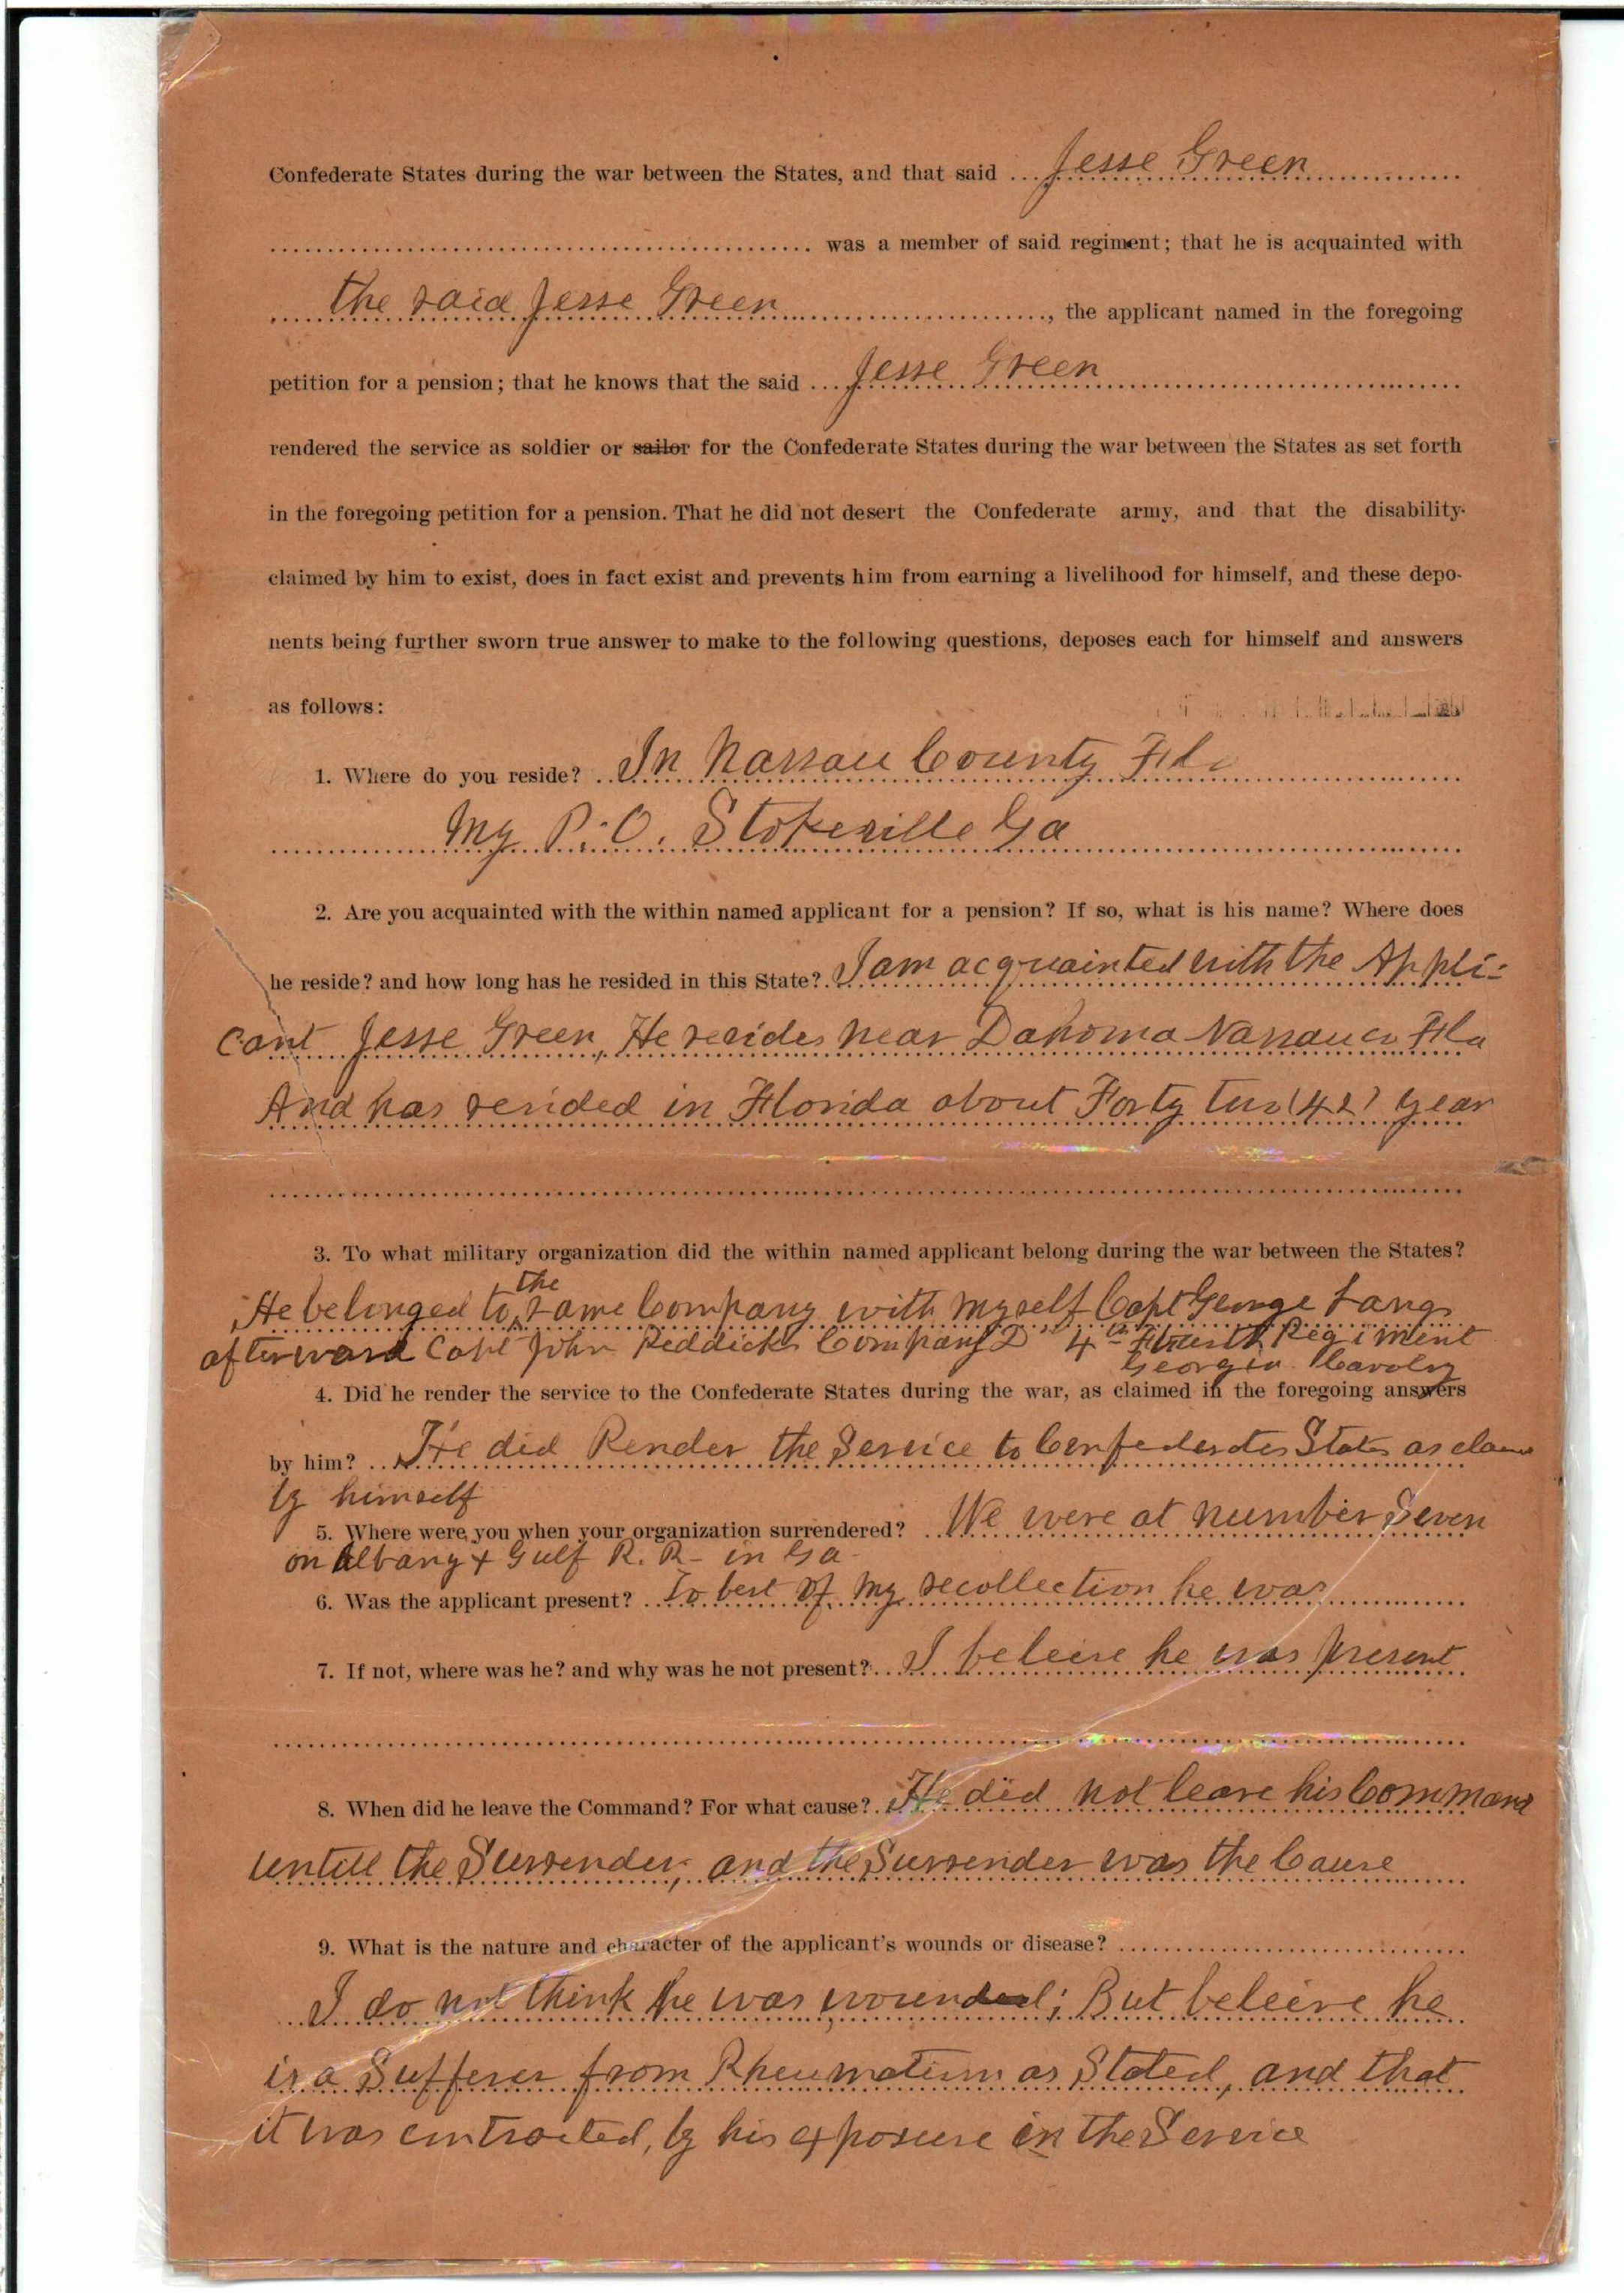 Confederate States during the war between the States, and that said Jesse Green
was a member of said regiment; that he is acquainted with
the said Jesse Green, the applicant named in the foregoing
petition for a pension; that he knows that the said Jesse Green
rendered the service as soldier or sailor for the Confederate States during the war between the States as set forth
in the foregoing petition for a pension. That he did not desert the Confederate army, and that the disability
claimed by him to exist, does in fact exist and prevents him from earning a livelihood for himself, and these depo-
nents being further sworn true answer to make to the following questions, deposes each for himself and answers
as follows:
1. Where do you reside? In Nassau County Fla
My P.O. Stokesville Ga
2. Are you acquainted with the within named applicant for a pension? If so, what is his name? Where does
he reside? and how long has he resided in this State? I am acquainted with the Appli-
cant Jesse Green, He resides near Dahoma Nassau co Fla
And has resided in Florida about Forty two (42) year
3. To what military organization did the within named applicant belong during the war between the States?
He belonged to the same Company with myself Capt George Langs
afterward Capt John Reddicks Company D 4th Regiment
Georgia Cavalry
4. Did he render the service to the Confederate States during the war, as claimed in the foregoing answers
by him? He did Render the Service to Confederates States as claim
by himself
5. Where were you when your organization surrendered? We were at number Seven
on Albany & Gulf R. R- in Ga-
6. Was the applicant present? To best of my recollection he was
7. If not, where was he? and why was he not present? I beleive he was present
8. When did he leave the Command? For what cause? He did not leave his Command
untill the Surrender, and the Surrender was the Cause
9. What is the nature and character of the applicant's wounds or disease?
I do not think he was wounded; But beleive he
is a Sufferer from Rheumatism as Stated, and that
it was contracted, by his exposure in the Service